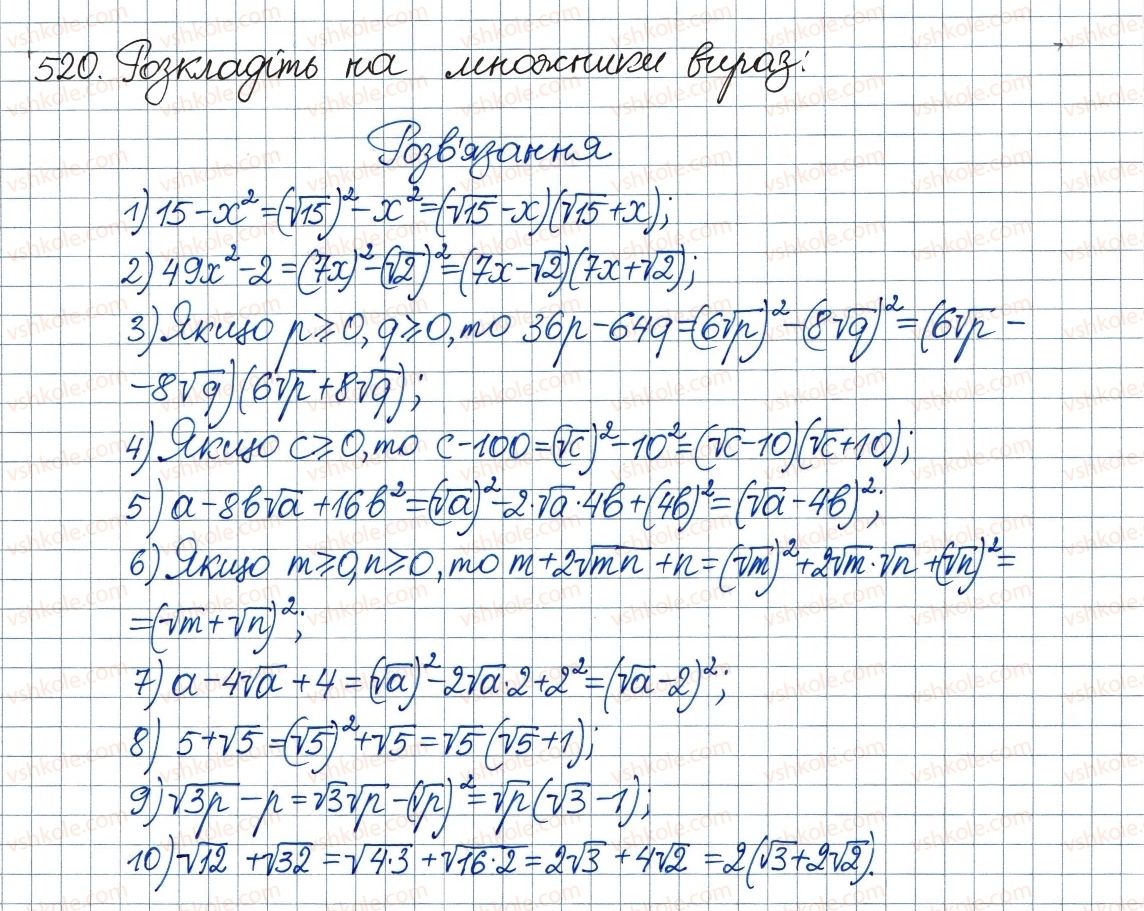 520. Розкладіть на множники вираз:
Розв'язання
1) 15-x²=(√15)²-x²=(√15-x)(√15+x);
2) 49x²-2=(7x)²-(√2)²=(7x-√2)(7x+√2);
3) Якщо p⩾0, q⩾0, то 36p-64q=(6√p)²-(8√q)²=(6√p -
-8√q)(6√p+8√q);
4) Якщо c⩾0, то c-100=(√c)²-10²=(√c-10)(√c+10);
5) a-8b√a+16b²=(√a)²-2·√a·4b+(4b)²=(√a-4b)²;
6) Якщо m⩾0, n⩾0, то m+2√mn+n=(√m)²+2√m·√n+(√n)²=
=(√m+√n)²;
7) a-4√a+4=(√a)²-2√a·2+2²=(√a-2)²;
8) 5+√5=(√5)²+√5=√5(√5+1);
9) √3p-p=√3√p-(√p)²=√p(√3-1);
10) √12+√32=√4·3+√16·2=2√3+4√2=2(√3+2√2).